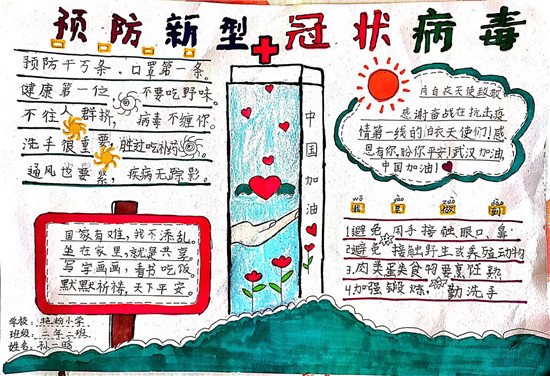 预防新型冠状病毒
预防千万条，口罩第一条。
健康第一位，不要吃野味。
不往人群挤，病毒不缠你。
洗手很重要，胜过吃补药。
通风也要紧，疾病无踪影。
国家有难，我不添乱。
坐在家里，就是共享。
写字画画，看书吃饭。
默默祈祷，天下平安。
学校：
班级：二年二班
姓名：孙一
中国加油
向白衣天使致敬
感谢奋战在抗击疫
情第一线的白衣天使们！感
恩有你，盼你平安！武汉加油，
中国加油！
1避免用手接触眼口鼻
2避免接触野生或养殖动物
3.肉类蛋类食物要烹饪熟
4加强锻炼，勤洗手